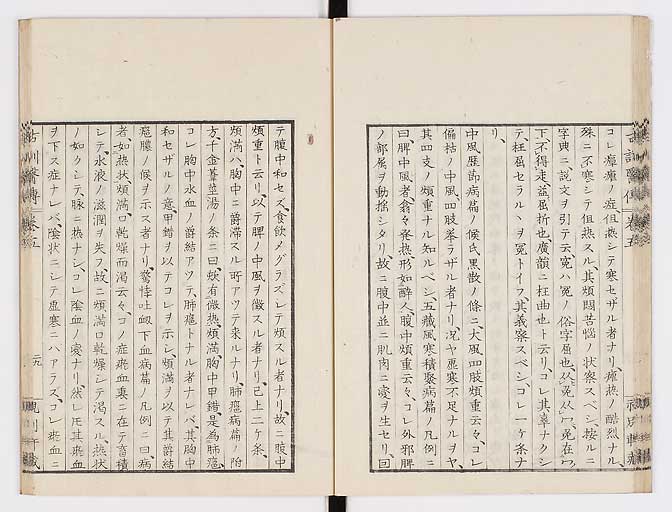 コレ瘴瘧ノ症但熱シテ寒セザル者ナリ瘴熱ノ酷烈ナル
殊ニ不寒シテ但熱スル其煩悶苦惱ノ状察スベシ按ルニ
字典ニ説文ヲ引テ云寃ハ冤ノ俗字屈也从兔从冖兔在冖
下不得走益屈折也廣韻ニ枉曲也ト云リコレ其辜ナクシ
テ枉屈セラルヽヲ冤トイフ其義察スベシコレ一ケ条ナ
リ
中風歴節病篇ノ候氏黒散ノ條ニ大風四肢煩重云々コレ
偏枯ノ中風四肢挙ラザル者ナリ况ヤ悪寒不足ナルヲヤ
其四支ノ煩重ナル知ルベシ五藏風寒積聚病篇ノ凡例ニ
曰脾中風者翕々発熱形如醉人腹中煩重云々コレ外邪脾
ノ部属ヲ動揺シタリ故ニ腹中並ニ肌肉ニ変ヲ生セリ囙
テ腹中和セズ食飲メグラズシテ煩スル者ナリ故ニ腹中
煩重ト云リ以テ脾ノ中風ヲ徴スル者ナリ已上二ケ条
煩満ハ胸中ニ欝滞スル所アツテ来ルナリ肺癰病篇ノ附
方千金葦莖湯ノ条ニ曰咳有微熱煩満胸中甲錯是為肺癰
コレ胸中水血ノ欝結アツテ肺癰トナル者ナレバ其胸中
和セザルノ意甲錯ヲ以テコレヲ示シ煩満ヲ以テ其欝結
癰膿ノ候ヲ示ス者ナリ驚悸吐衂下血病篇ノ凡例ニ曰病
者如熱状煩満口乾燥而渴云々コノ症瘀血裏ニ在テ畜積
シテ水液ノ滋潤ヲ失フ故ニ煩満口乾燥シテ渴スル熱状
ノ如クシテ脉ニ熱ナシコレ陰血ノ変ナリ然レ𪜈其瘀血
ヲ下ス症ナレバ陰状ニシテ虚寒ニハアラズコレ瘀血ニ
古訓醫傳 巻五